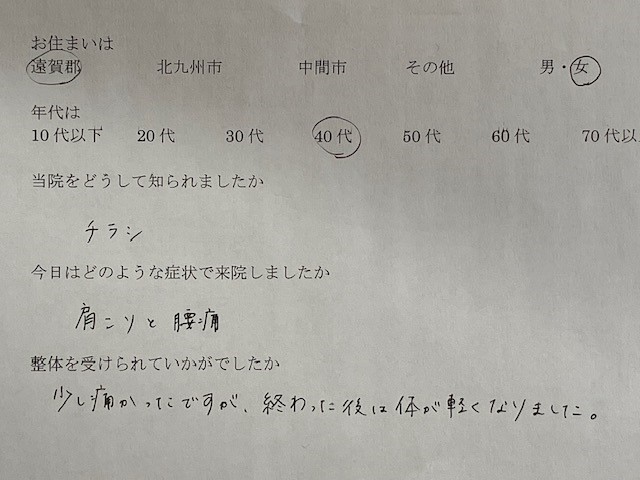 お住まいは
遠賀郡 北九州市 中間市 その他 男・女
年代は
10代以下 20代 30代 40代 50代 60代 70代以
当院をどうして知られましたか
チラシ
今日はどのような症状で来院しましたか
肩こりと腰痛
整体を受けられていかがでしたか
少し痛かったですが、終わった後は体が軽くなりました。